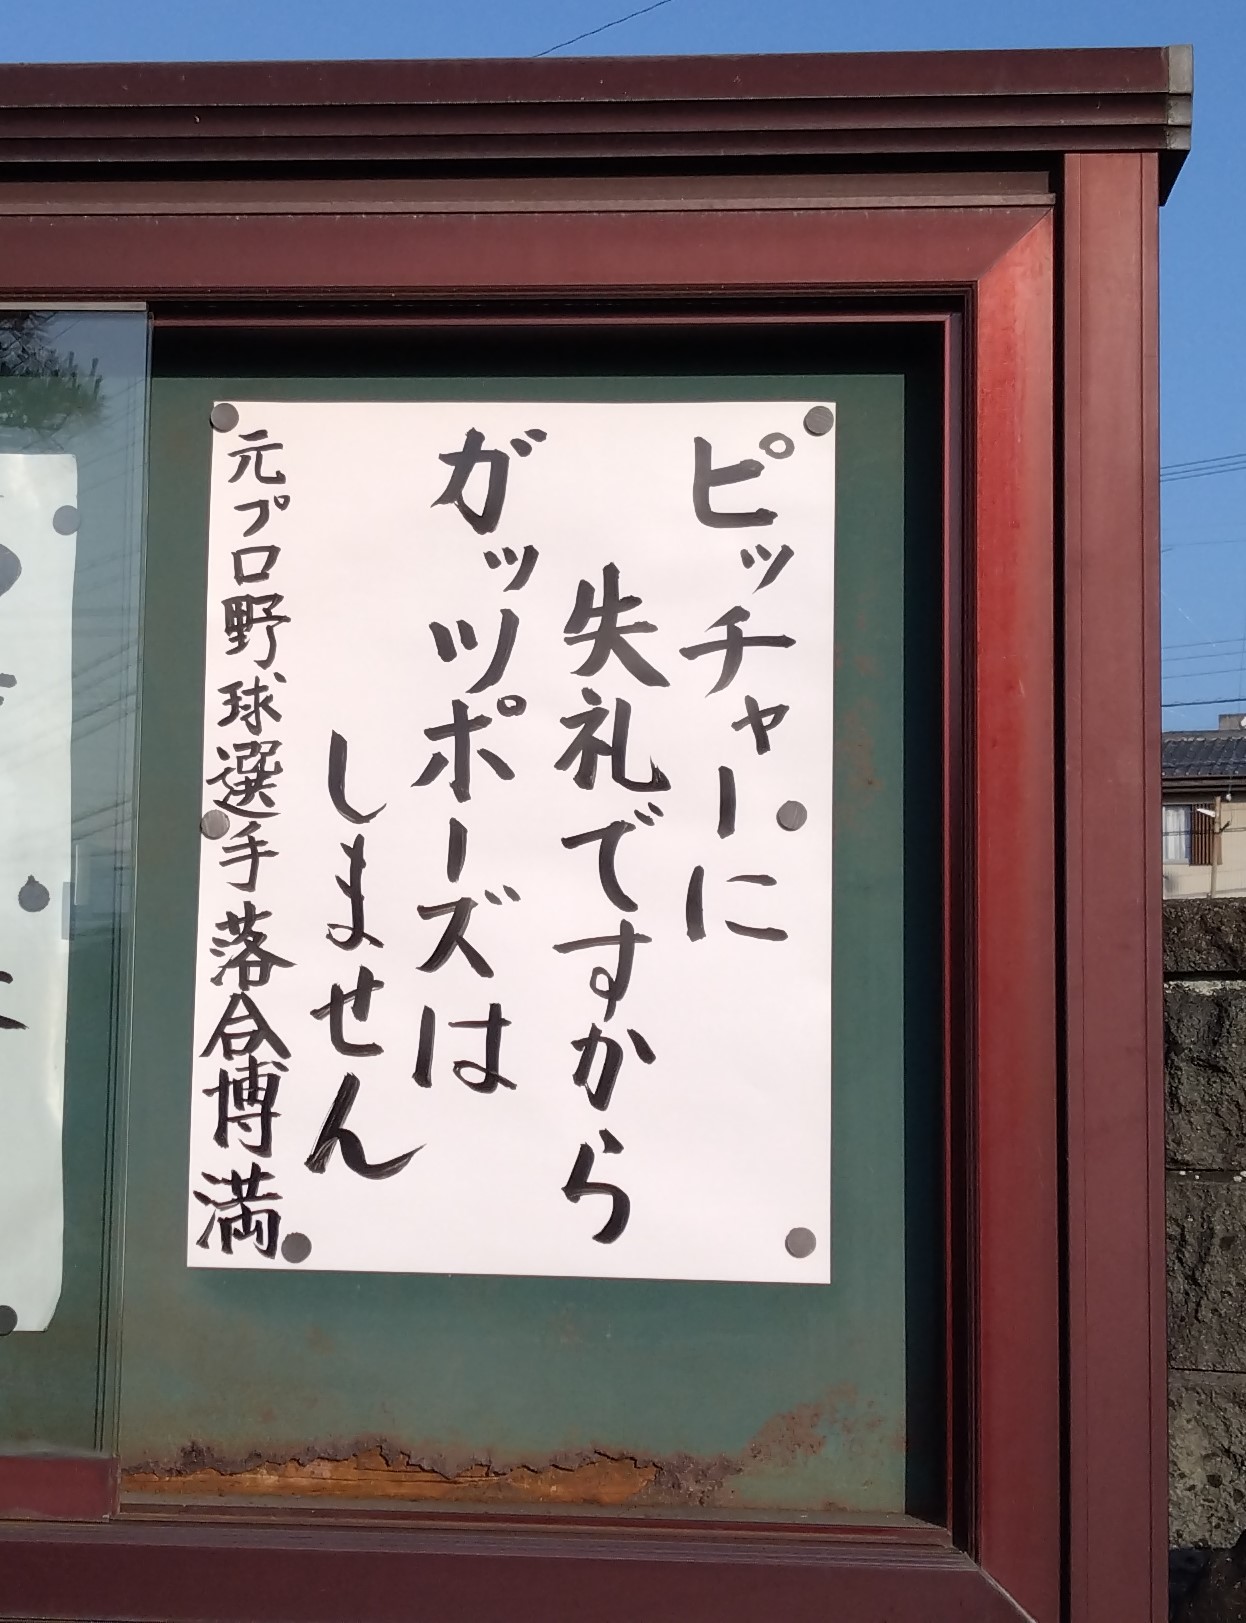 ピッチャーに
失礼ですから
ガッツポーズは
しません
元プロ野球選手落合博満